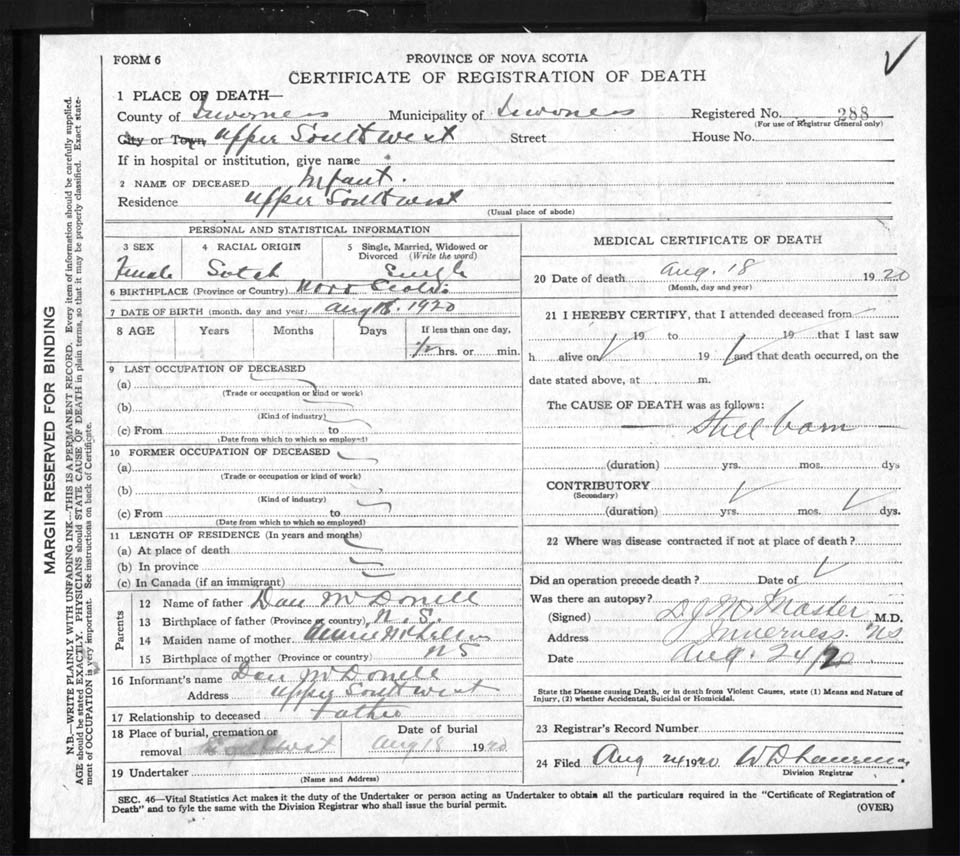 FORM 6
PROVINCE OF NOVA SCOTIA
CERTIFICATE OF REGISTRATION OF DEATH
1 PLACE OF DEATH—
County of Inverness Municipality of Inverness Registered No. 288
(For use of Registrar General only)
City or Town Upper Southwest Street House No.
If in hospital or institution, give name
2 NAME OF DECEASED Infant.
Residence Upper Southwest
(Usual place of abode)
PERSONAL AND STATISTICAL INFORMATION
3 SEX 4 RACIAL ORIGIN 5 Single, Married, Widowed or
Divorced (Write the word)
Female Sotch Single
6 BIRTHPLACE (Province or Country) Nova Scotia
7 DATE OF BIRTH (month, day and year) Aug 18. 1920
8 AGE Years Months Days If less than one day,
1/2 hrs. or min.
9 LAST OCCUPATION OF DECEASED
(a)
(Trade or occupation or kind or work)
(b)
(Kind of industry)
(c) From to
(Date from which to which so employed)
10 FORMER OCCUPATION OF DECEASED
(a)
(Trade or occupation or kind of work)
(b)
(Kind of industry)
(c) From to
(Date from which to which so employed)
11 LENGTH OF RESIDENCE (In years and months)
(a) At place of death
(b) In province
(c) In Canada (if an immigrant)
Parents
12 Name of father Dan McDonell
13 Birthplace of father (Province or country) N. S.
14 Maiden name of mother
15 Birthplace of mother (Province or country) NS
16 Informant's name Dan McDonell
Address Upper Southwest
17 Relationship to deceased Father
18 Place of burial, cremation or Date of burial
removal Aug 18 1920
19 Undertaker
(Name and Address)
MEDICAL CERTIFICATE OF DEATH
20 Date of death Aug. 18 1920
(Month, day and year)
21 I HEREBY CERTIFY, that I attended deceased from
19 to 19 that I last saw
h alive on 19 and that death occurred, on the
date stated above, at m.
The CAUSE OF DEATH was as follows:
Still born
(duration) yrs. mos. dys
CONTRIBUTORY
(Secondary)
(duration) yrs. mos. dys.
22 Where was disease contracted if not at place of death?
Did an operation precede death? Date of
Was there an autopsy?
(Signed) D J McMaster M.D.
Address Inverness. NS
Date Aug. 24/20
State the Disease causing Death, or in death from Violent Causes, state (1) Means and Nature of
Injury, (2) whether Accidental, Suicidal or Homicidal.
23 Registrar's Record Number
24 Filed Aug 24 1920 W D Lawrence
Division Registrar
SEC. 46—Vital Statistics Act makes it the duty of the Undertaker or person acting as Undertaker to obtain all the particulars required in the "Certificate of Registration of
Death" and to fyle the same with the Division Registrar who shall issue the burial permit. (OVER)
MARGIN RESERVED FOR BINDING
N.B.—WRITE PLAINLY WITH UNFADING INK—THIS IS A PERMANENT RECORD. Every item of information should be carefully supplied.
AGE should be stated EXACTLY. PHYSICIANS should STATE CAUSE OF DEATH in plain terms, so that it may be properly classified. Exact state-
ment of OCCUPATION is very important. See instructions on back of Certificate.